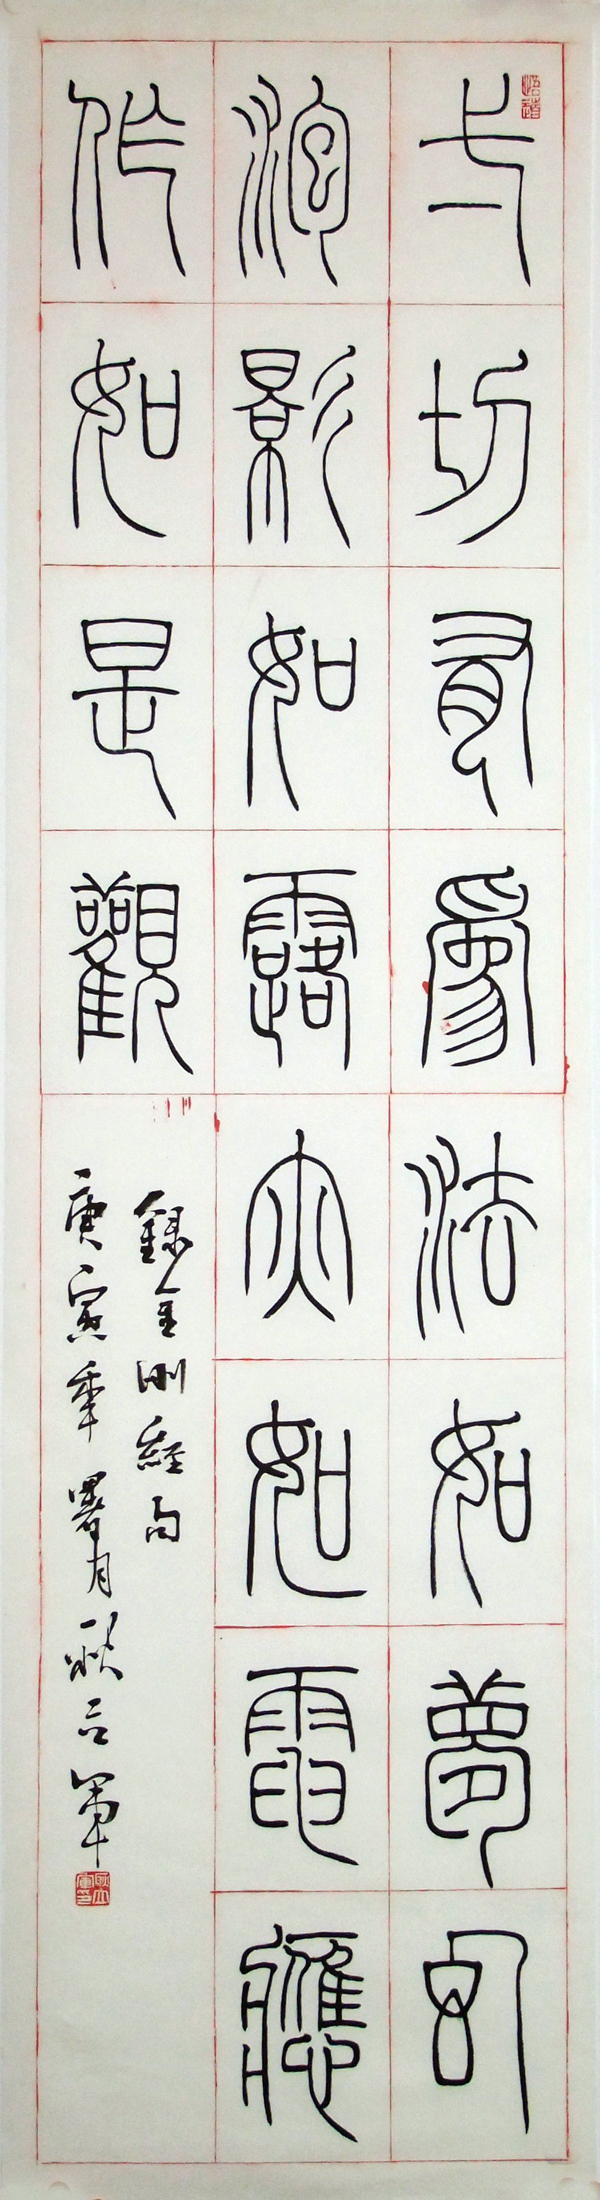 弌切有為法如夢幻
泡影如露亦如電應
作如是觀
錄金剛經句
庚寅年暑月